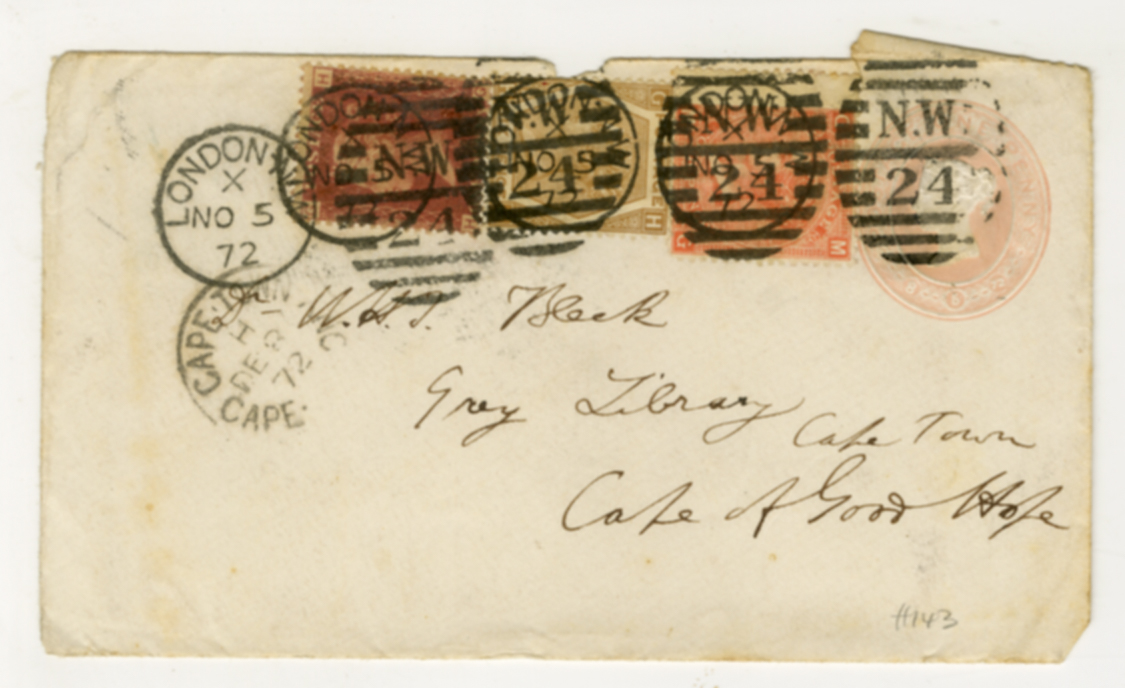 LONDON N.W
X
NO 5
72
LONDON N.W
X
NO 5
72
N.W
24
LONDON N.W
X
NO 5
72
N.W
24
LONDON N.W
X
NO 5
72
N.W
24
N.W.
24
H
G
H
M
G
ONE PENNY
CAPE-TOWN
H 1
DE 8
72
CAPE
Dr W.H.I. Bleek
Grey Library
Cape Town
Cape of Good Hope
H143